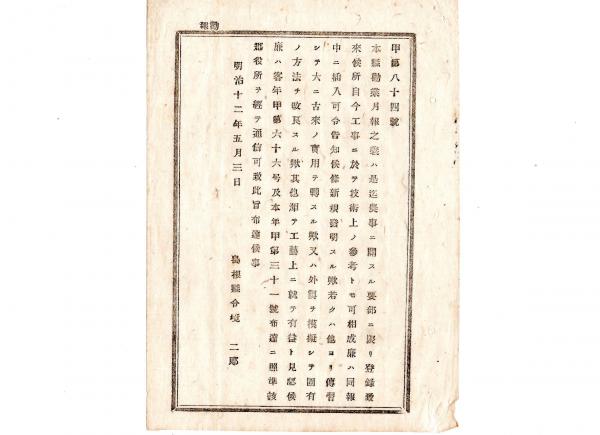 勸報
甲第八十四號
本縣勸業月報之義ハ是迄農事ニ關スル要部ニ限リ登錄致
來候所自今工事ニ於テ技術上ノ參考トモ可相成廉ハ同報
中ニ插入可令告知候條新規發明スル歟若クハ他ヨリ傳習
シテ大ニ古來ノ實用ヲ轉スル歟又ハ外國ヲ模擬シテ固有
ノ方法ヲ改良スル歟其他渾テ工藝上ニ就テ有益ト見認候
廉ハ客年甲第六十六号及本年甲第三十一號布達ニ照準該
郡役所ヲ經テ通信可致此旨布達候事
明治十二年五月三日
島根縣令境 二郎